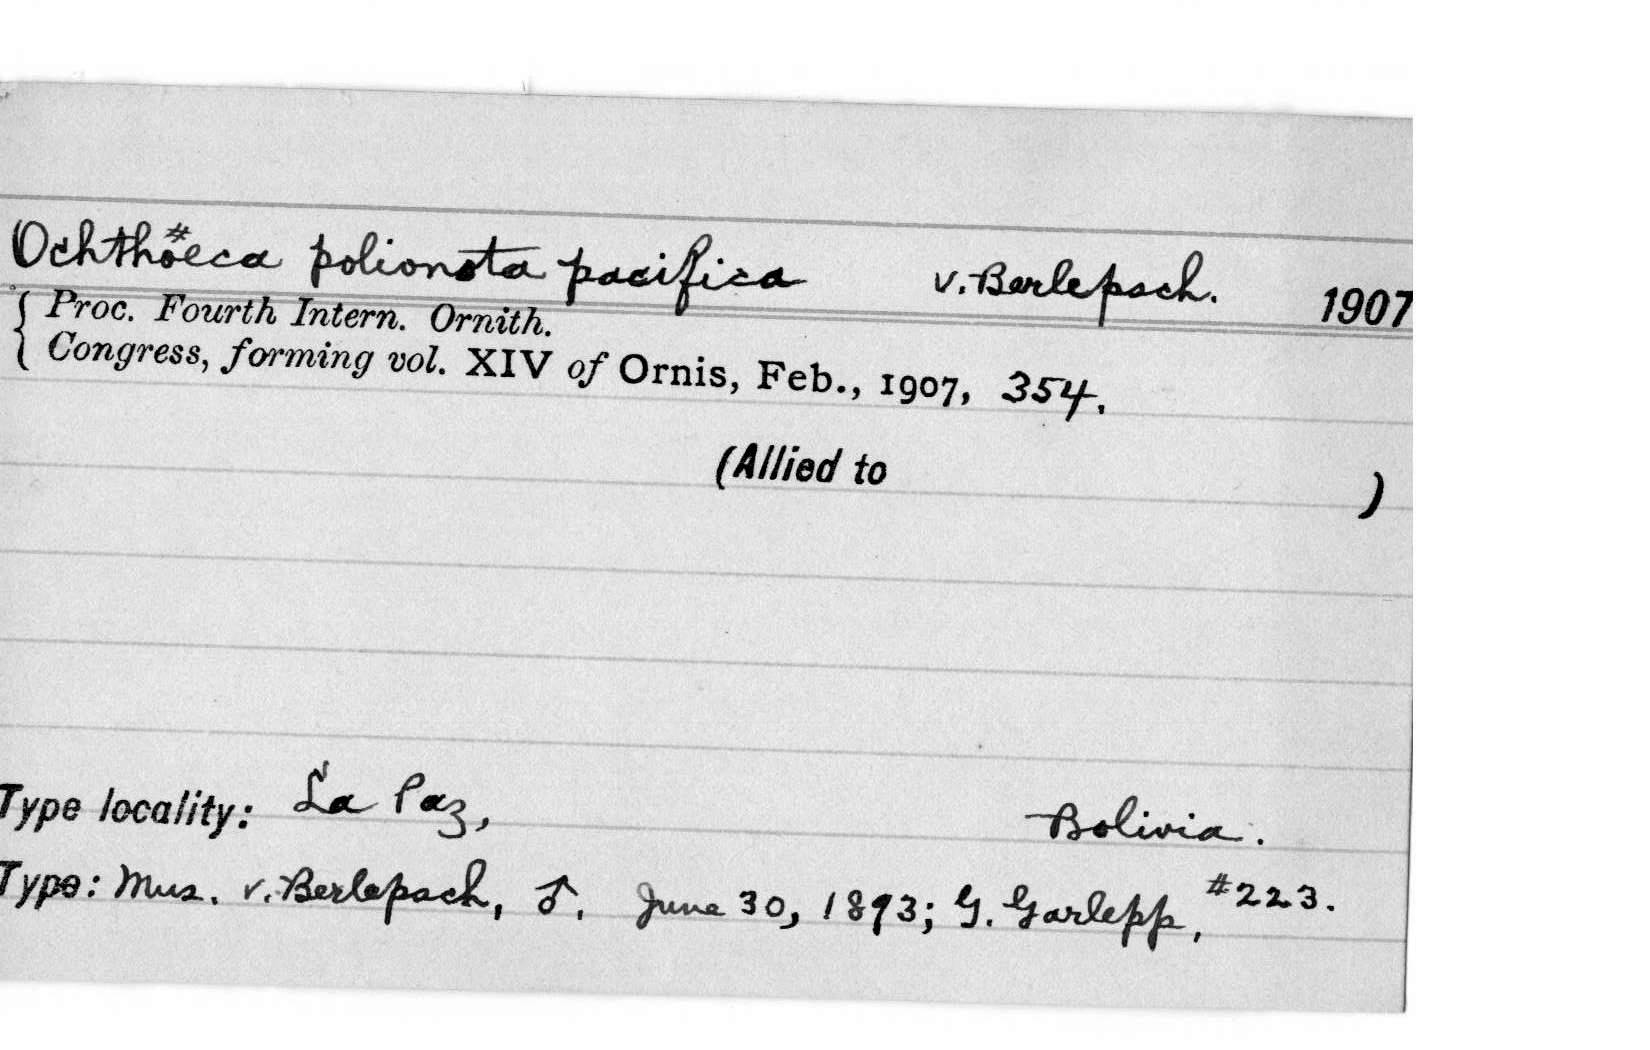 Ochthoeca polionota pacifica v. Berlepsch. 1907
{ Proc. Fourth Intern. Ornith.
Congress, forming vol. XIV of Ornis, Feb., 1907, 354.
(Allied to )
Type locality: La Paz, Bolivia.
Type: Mus. v. Berlepsch, ♂. June 30, 1893; G. Garlepp, #223.